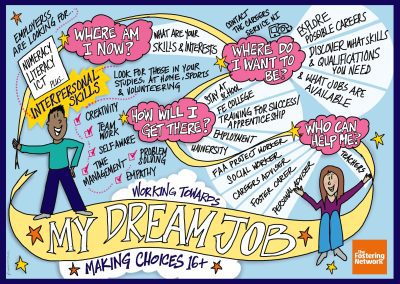 EMPLOYERS
ARE LOOKING FOR
NUMERACY
LITERACY
ICT PLUS...
INTERPERSONAL
SKILLS
CREATIVITY
TEAM
WORK
SELF AWARE
TIME
MANAGEMENT
PROBLEM
SOLVING
EMPATHY
WHERE AM
I NOW?
WHAT ARE YOUR
SKILLS & INTERESTS
LOOK FOR THESE IN YOUR
STUDIES, AT HOME, SPORTS
& VOLUNTEERING
CONTACT
THE CAREERS
SERVICE NI
WHERE DO
I WANT TO
BE?
EXPLORE
POSSIBLE CAREERS
DISCOVER WHAT SKILLS
& QUALIFICATIONS
YOU NEED
& WHAT JOBS ARE
AVAILABLE
HOW WILL I
GET THERE?
STAY AT
SCHOOL
FE COLLEGE
TRAINING FOR SUCCESS/
APPRENTICESHIP
EMPLOYMENT
UNIVERSITY
WHO CAN
HELP ME?
PAA PROJECT WORKER
SOCIAL WORKER
CAREERS ADVISER
FOSTER CARER
PERSONAL ADVISER
TEACHERS
WORKING TOWARDS
MY DREAM JOB
MAKING CHOICES 16+
The
Fostering
Network